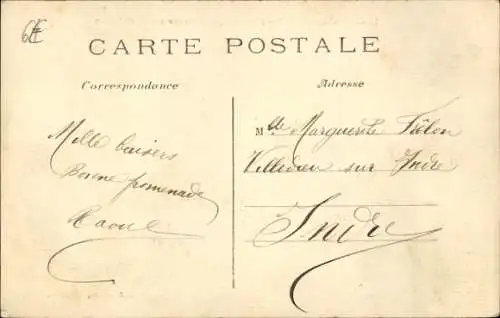 6E
CARTE POSTALE
Correspondance
Adresse
Mille baisers
Bonne promenade
Raoul
Mlle Marguerite
Villedieu sur Indre
Indre